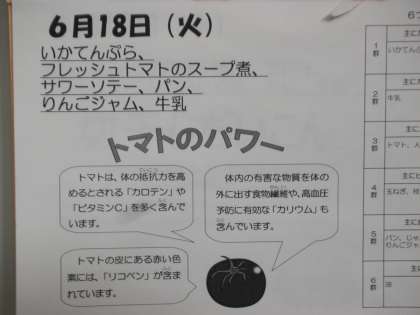 6月18日（火）
いかてんぷら、
フレッシュトマトのスープ煮、
サワーソテー、パン、
りんごジャム、牛乳
トマトのパワー
トマトは、体の抵抗力を高
めるとされる「カロテン」や
「ビタミンC」を多く含んで
います。
体内の有害な物質を体の
外に出す食物繊維や、高血圧
予防に有効な「カリウム」も
含んでいます。
トマトの皮にある赤い色
素には、「リコペン」が含ま
れています。
6つ
主に
1群
いかてんぷ
主に
2群
牛乳
主に
3群
トマト、
主に
4群
玉ねぎ、
主に
5群
パン、じゃ
りんごジャ
主に
6群
油